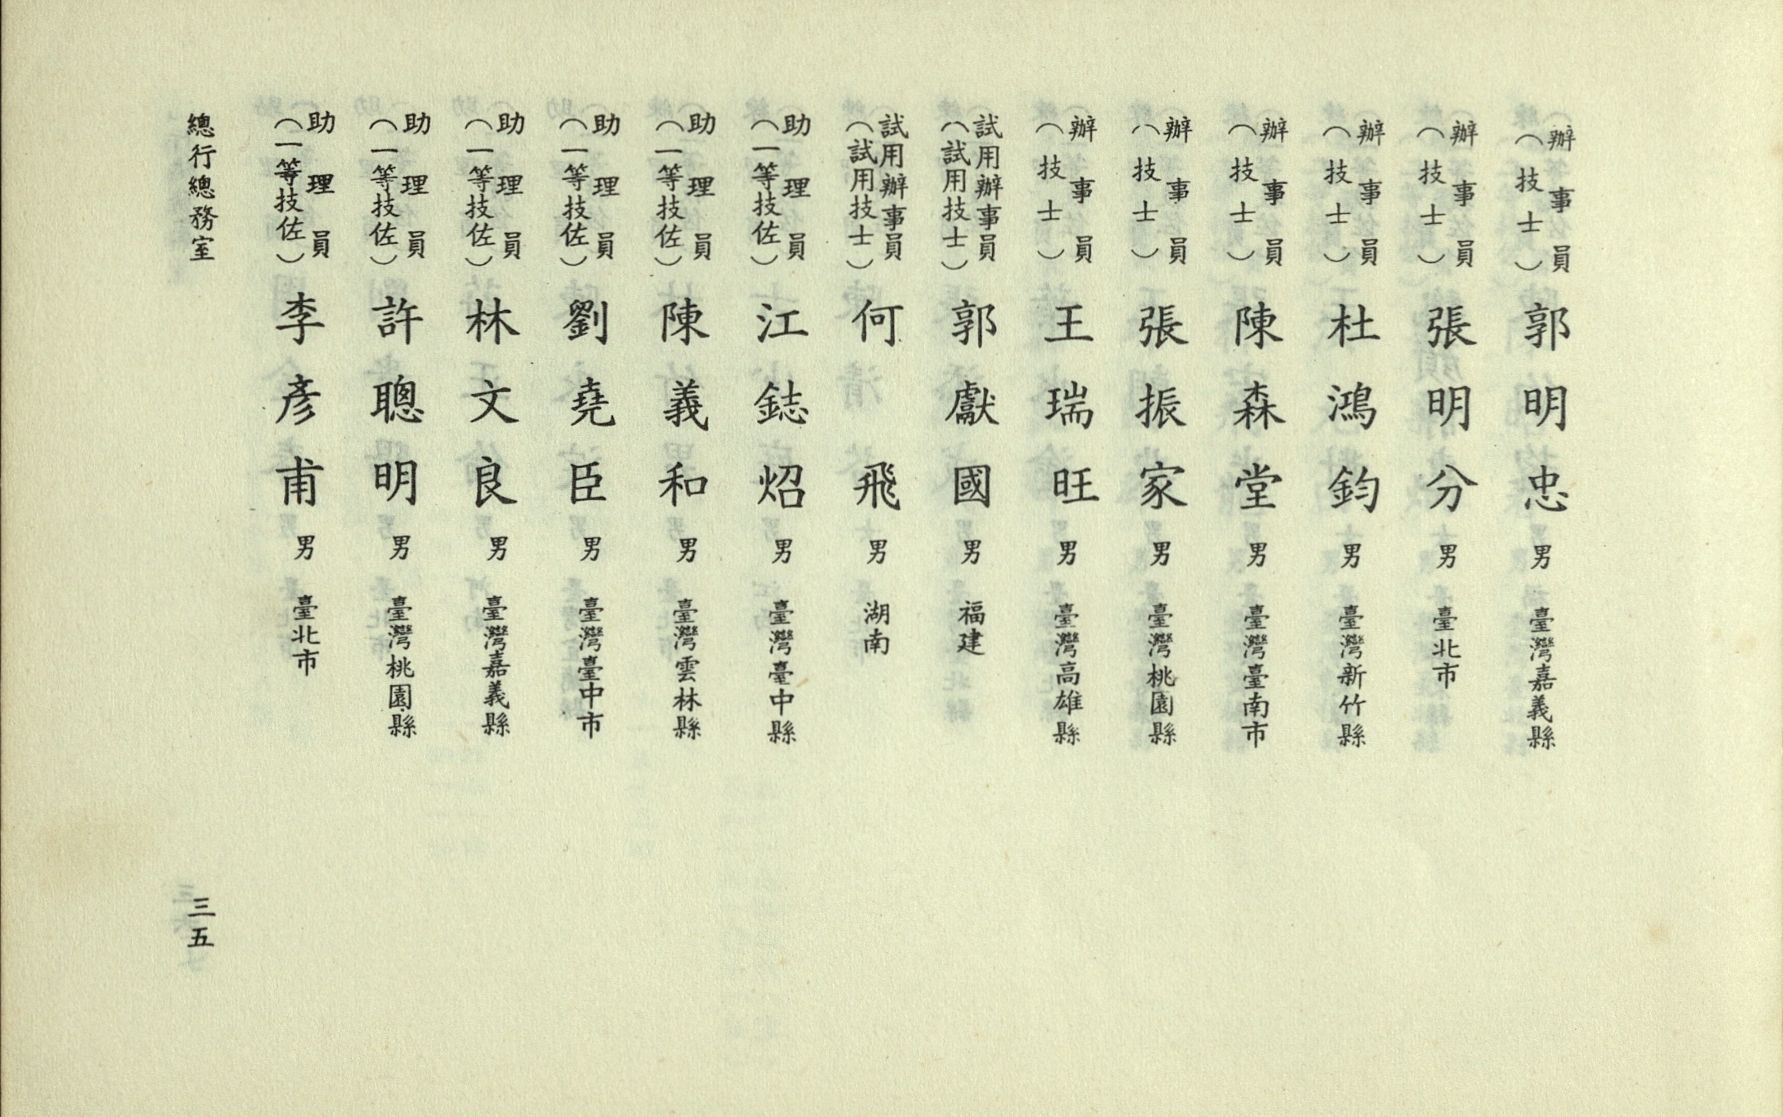 辦事員(技士) 郭明忠 男 臺灣嘉義縣
辦事員(技士) 張明分 男 臺北市
辦事員(技士) 杜鴻鈞 男 臺灣新竹縣
辦事員(技士) 陳森堂 男 臺灣臺南市
辦事員(技士) 張振家 男 臺灣桃園縣
辦事員(技士) 王瑞旺 男 臺灣高雄縣
試用辦事員(試用技士) 郭獻國 男 福建
試用辦事員(試用技士) 何飛 男 湖南
助理員(一等技佐) 江鋕炤 男 臺灣臺中縣
助理員(一等技佐) 陳義和 男 臺灣雲林縣
助理員(一等技佐) 劉堯臣 男 臺灣臺中市
助理員(一等技佐) 林文良 男 臺灣嘉義縣
助理員(一等技佐) 許聰明 男 臺灣桃園縣
助理員(一等技佐) 李彥甫 男 臺北市
總行總務室 三五